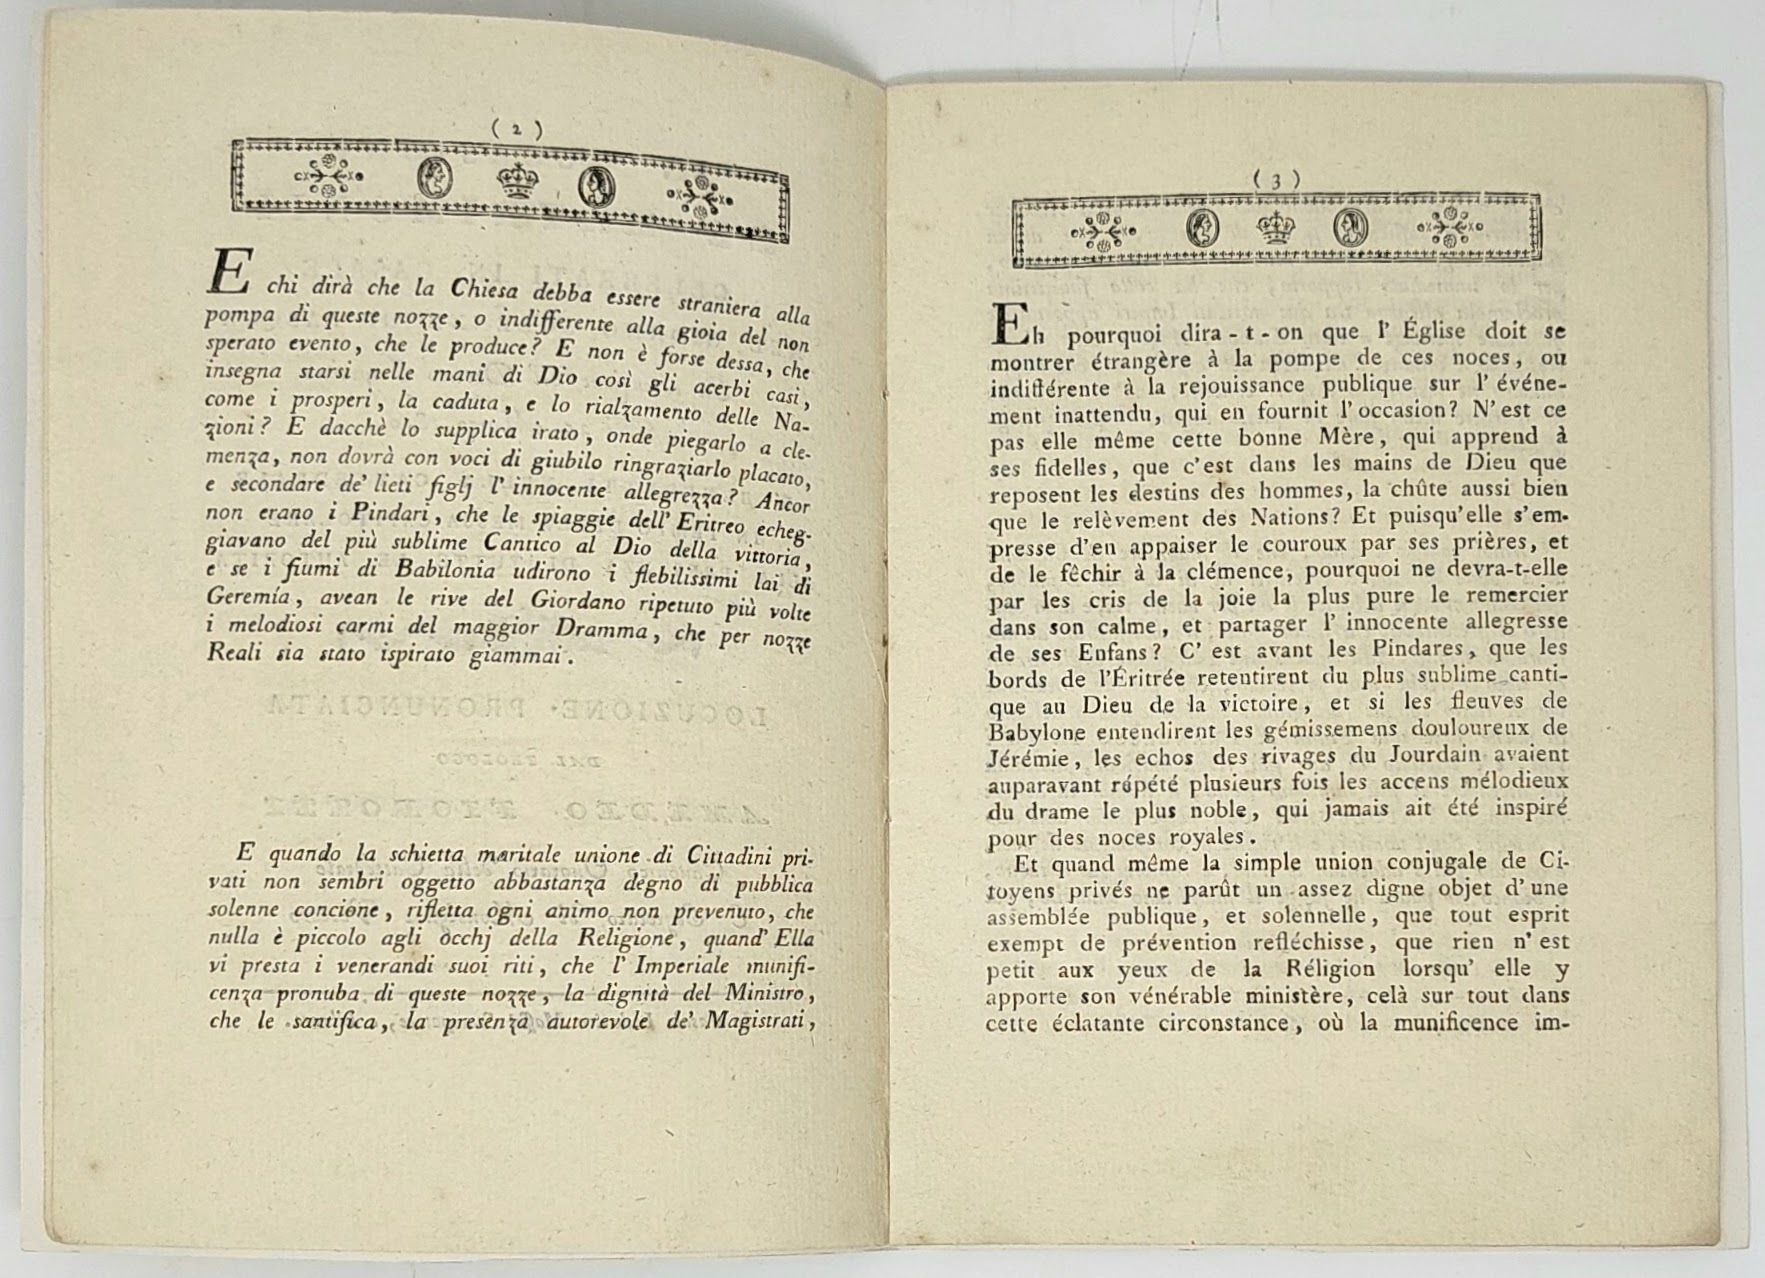 ( 2 )
E chi dirà che la Chiesa debba essere straniera alla
pompa di queste nozze, o indifferente alla gioia del non
sperato evento, che le produce? E non è forse dessa, che
insegna starsi nelle mani di Dio così gli acerbi casi,
come i prosperi, la caduta, e lo rialzamento delle Na-
zioni? E dacchè lo supplica irato, onde piegarlo a cle-
menza, non dovrà con voci di giubilo ringraziarlo placato,
e secondare de' lieti figlj l' innocente allegrezza? Ancor
non erano i Pindari, che le spiaggie dell' Eritreo echeg-
giavano del più sublime Cantico al Dio della vittoria,
e se i fiumi di Babilonia udirono i flebilissimi lai di
Geremía, avean le rive del Giordano ripetuto più volte
i melodiosi carmi del maggior Dramma, che per nozze
Reali sia stato ispirato giammai.
E quando la schietta maritale unione di Cittadini pri-
vati non sembri oggetto abbastanza degno di pubblica
solenne concione, rifletta ogni animo non prevenuto, che
nulla è piccolo agli occhj della Religione, quand' Ella
vi presta i venerandi suoi riti, che l' Imperiale munifi-
cenza pronuba di queste nozze, la dignità del Ministro,
che le santifica, la presenza autorevole de' Magistrati,
( 3 )
Eh pourquoi dira-t-on que l' Église doit se
montrer étrangère à la pompe de ces noces, ou
indifférente à la rejouissance publique sur l' événe-
ment inattendu, qui en fournit l'occasion? N'est ce
pas elle même cette bonne Mère, qui apprend à
ses fidelles, que c'est dans les mains de Dieu que
reposent les destins des hommes, la chûte aussi bien
que le relèvement des Nations? Et puisqu'elle s'em-
presse d'en appaiser le couroux par ses prières, et
de le fêchir à la clémence, pourquoi ne devra-t-elle
par les cris de la joie la plus pure le remercier
dans son calme, et partager l' innocente allegresse
de ses Enfans? C' est avant les Pindares, que les
bords de l'Éritrée retentirent du plus sublime canti-
que au Dieu de la victoire, et si les fleuves de
Babylone entendirent les gémissemens douloureux de
Jérémie, les echos des rivages du Jourdain avaient
auparavant répété plusieurs fois les accens mélodieux
du drame le plus noble, qui jamais ait été inspiré
pour des noces royales.
Et quand même la simple union conjugale de Ci-
toyens privés ne parût un assez digne objet d' une
assemblée publique, et solennelle, que tout esprit
exempt de prévention refléchisse, que rien n'est
petit aux yeux de la Réligion lorsqu' elle y
apporte son vénérable ministère, celà sur tout dans
cette éclatante circonstance, où la munificence im-